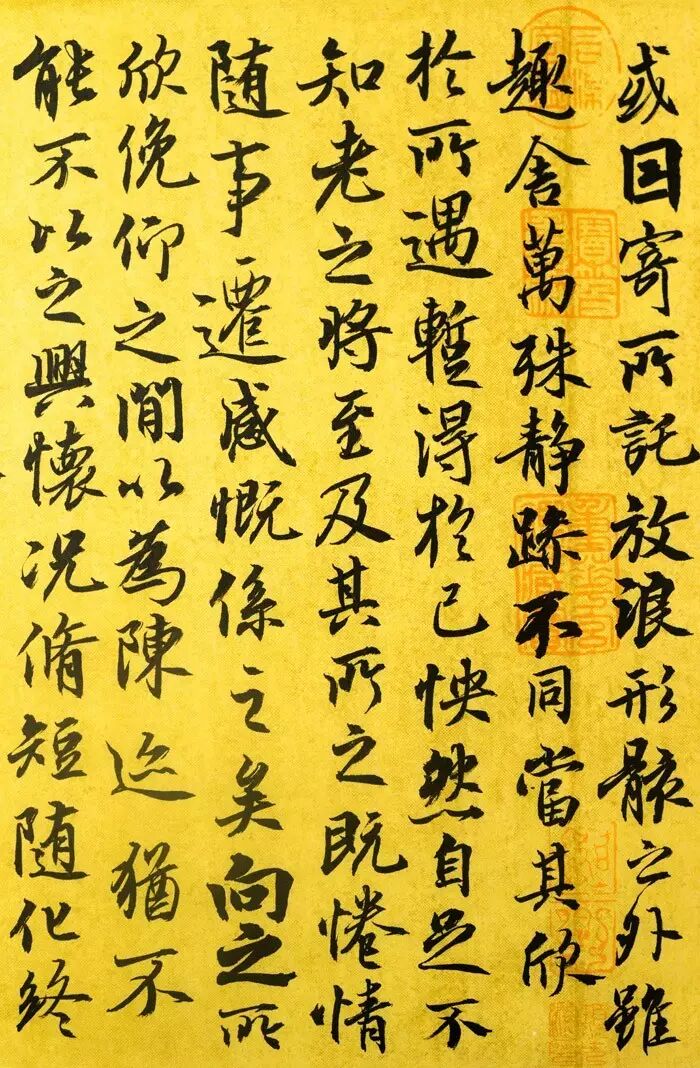 或因寄所託放浪形骸之外雖
趣舍萬殊静躁不同當其欣
於所遇暫得於己怏然自足不
知老之将至及其所之既惓情
随事遷感慨係之矣向之所
欣俛仰之閒以為陳迹猶不
能不以之興懷况脩短随化終